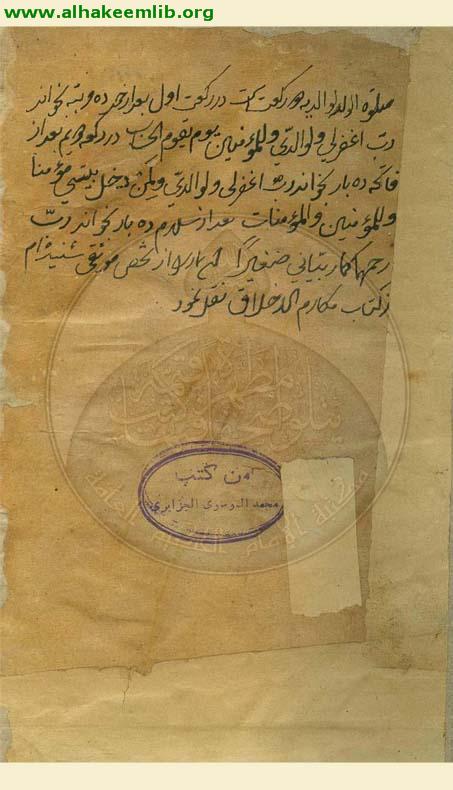 www.alhakeemlib.org
صلوة الولد لوالديه دو ركعت است در ركعت اول بعد از حمد ده مرتبه بخواند
رب اغفرلي ولوالديّ وللمؤمنين يوم يقوم الحساب در دكعه دويم بعد از
فاتحه ده بار بخواند رب اغفرلي ولوالديّ ولمن دخل بيتي مؤمنا
وللمؤمنين والمؤمنات بعد از سلام ده بار بخواند ربّ
ارحمهما كما ربياني صغيرًا اين نماز را از شخص موثقي شنيده ام
از كتاب مكارم الاخلاق نقل نمود
من كتب
محمد الموسوي الجزايري